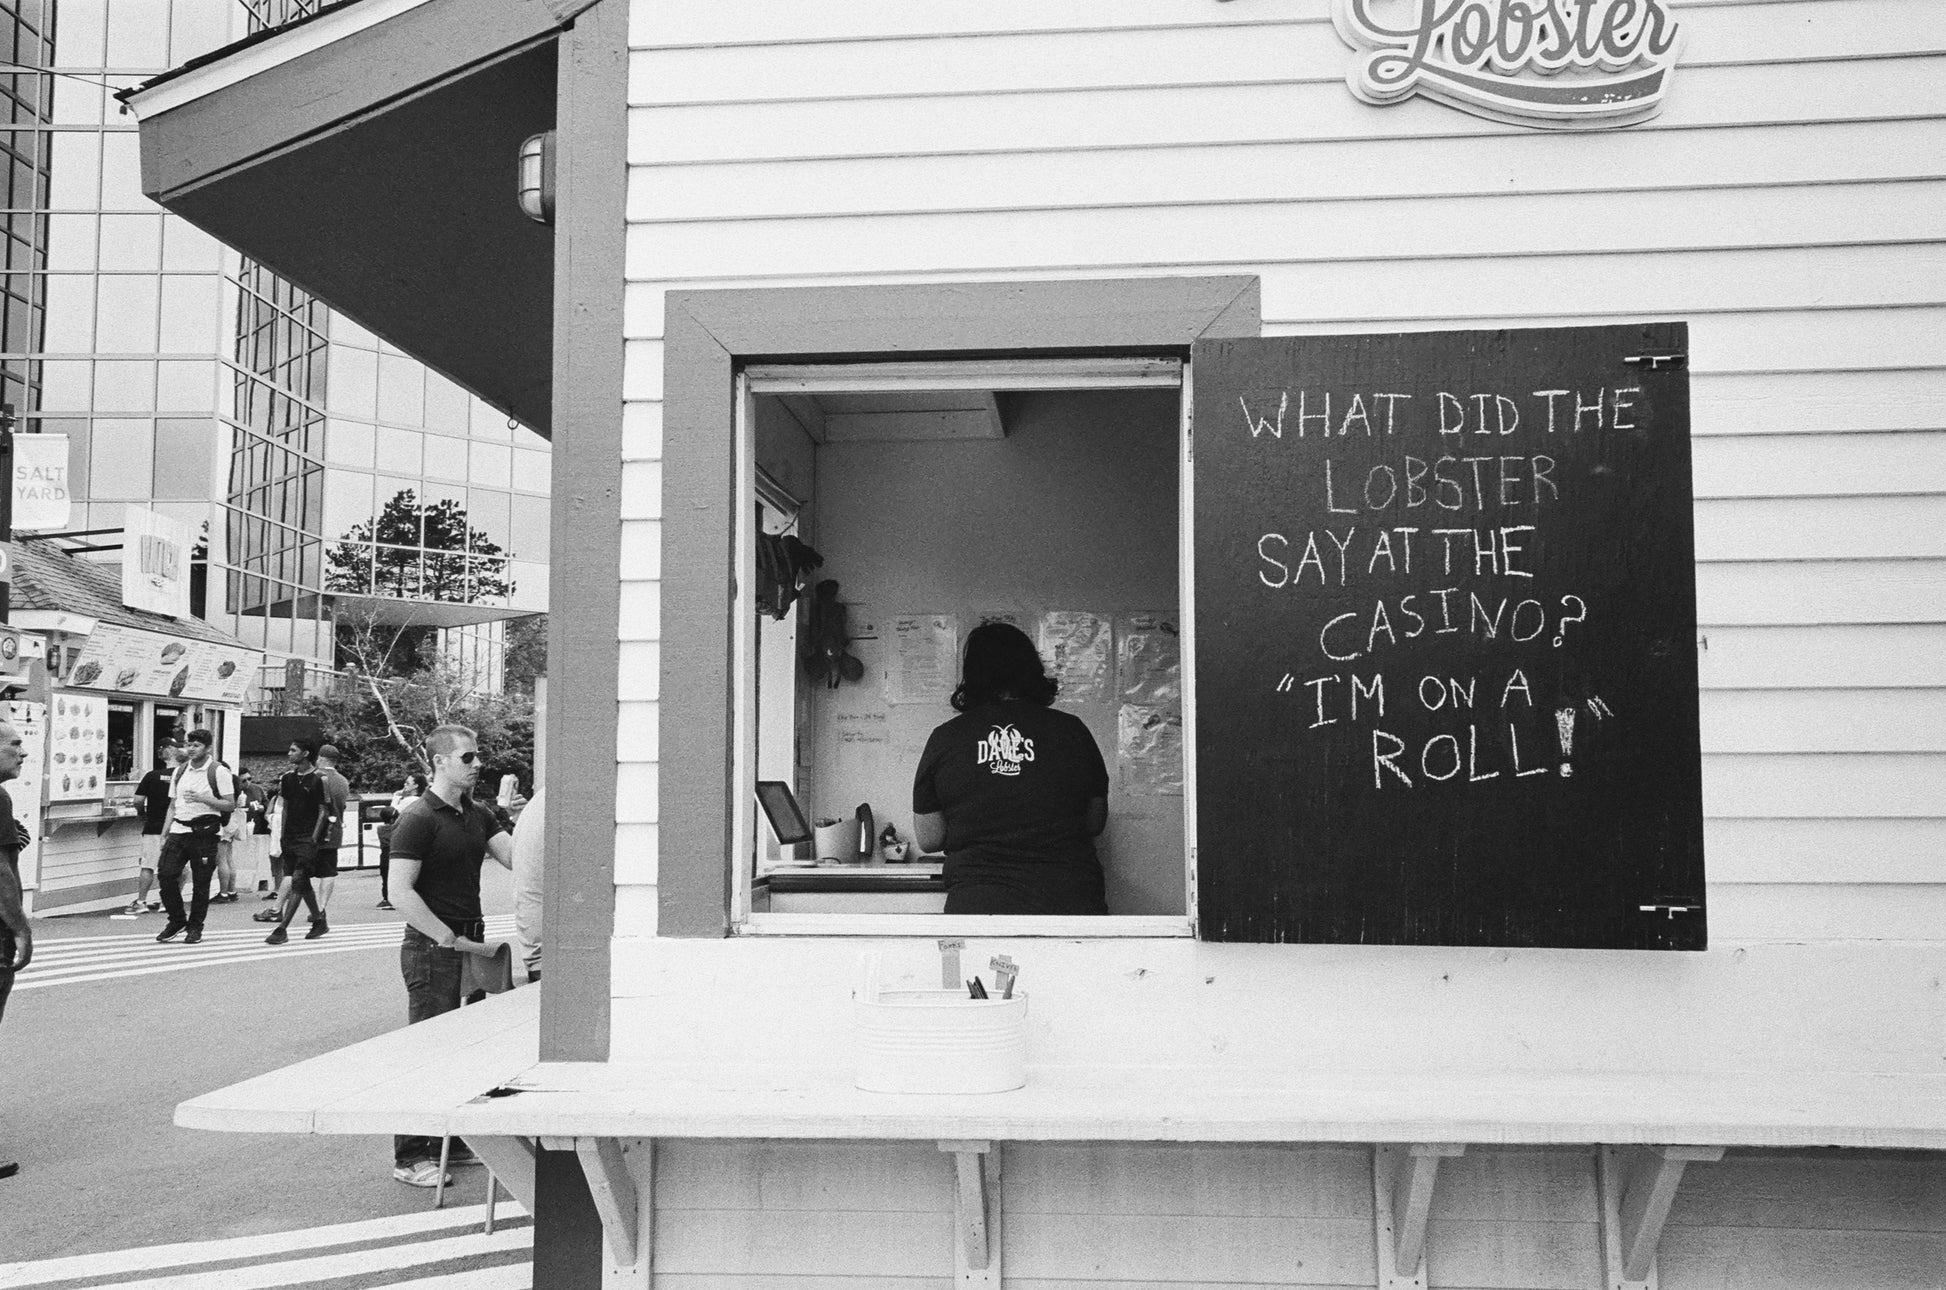 Lobster
WHAT DID THE
LOBSTER
SAY AT THE
CASINO?
"I'M ON A
ROLL!"
SALT
YARD
DAVE'S
Lobster
Forks
KNIVES